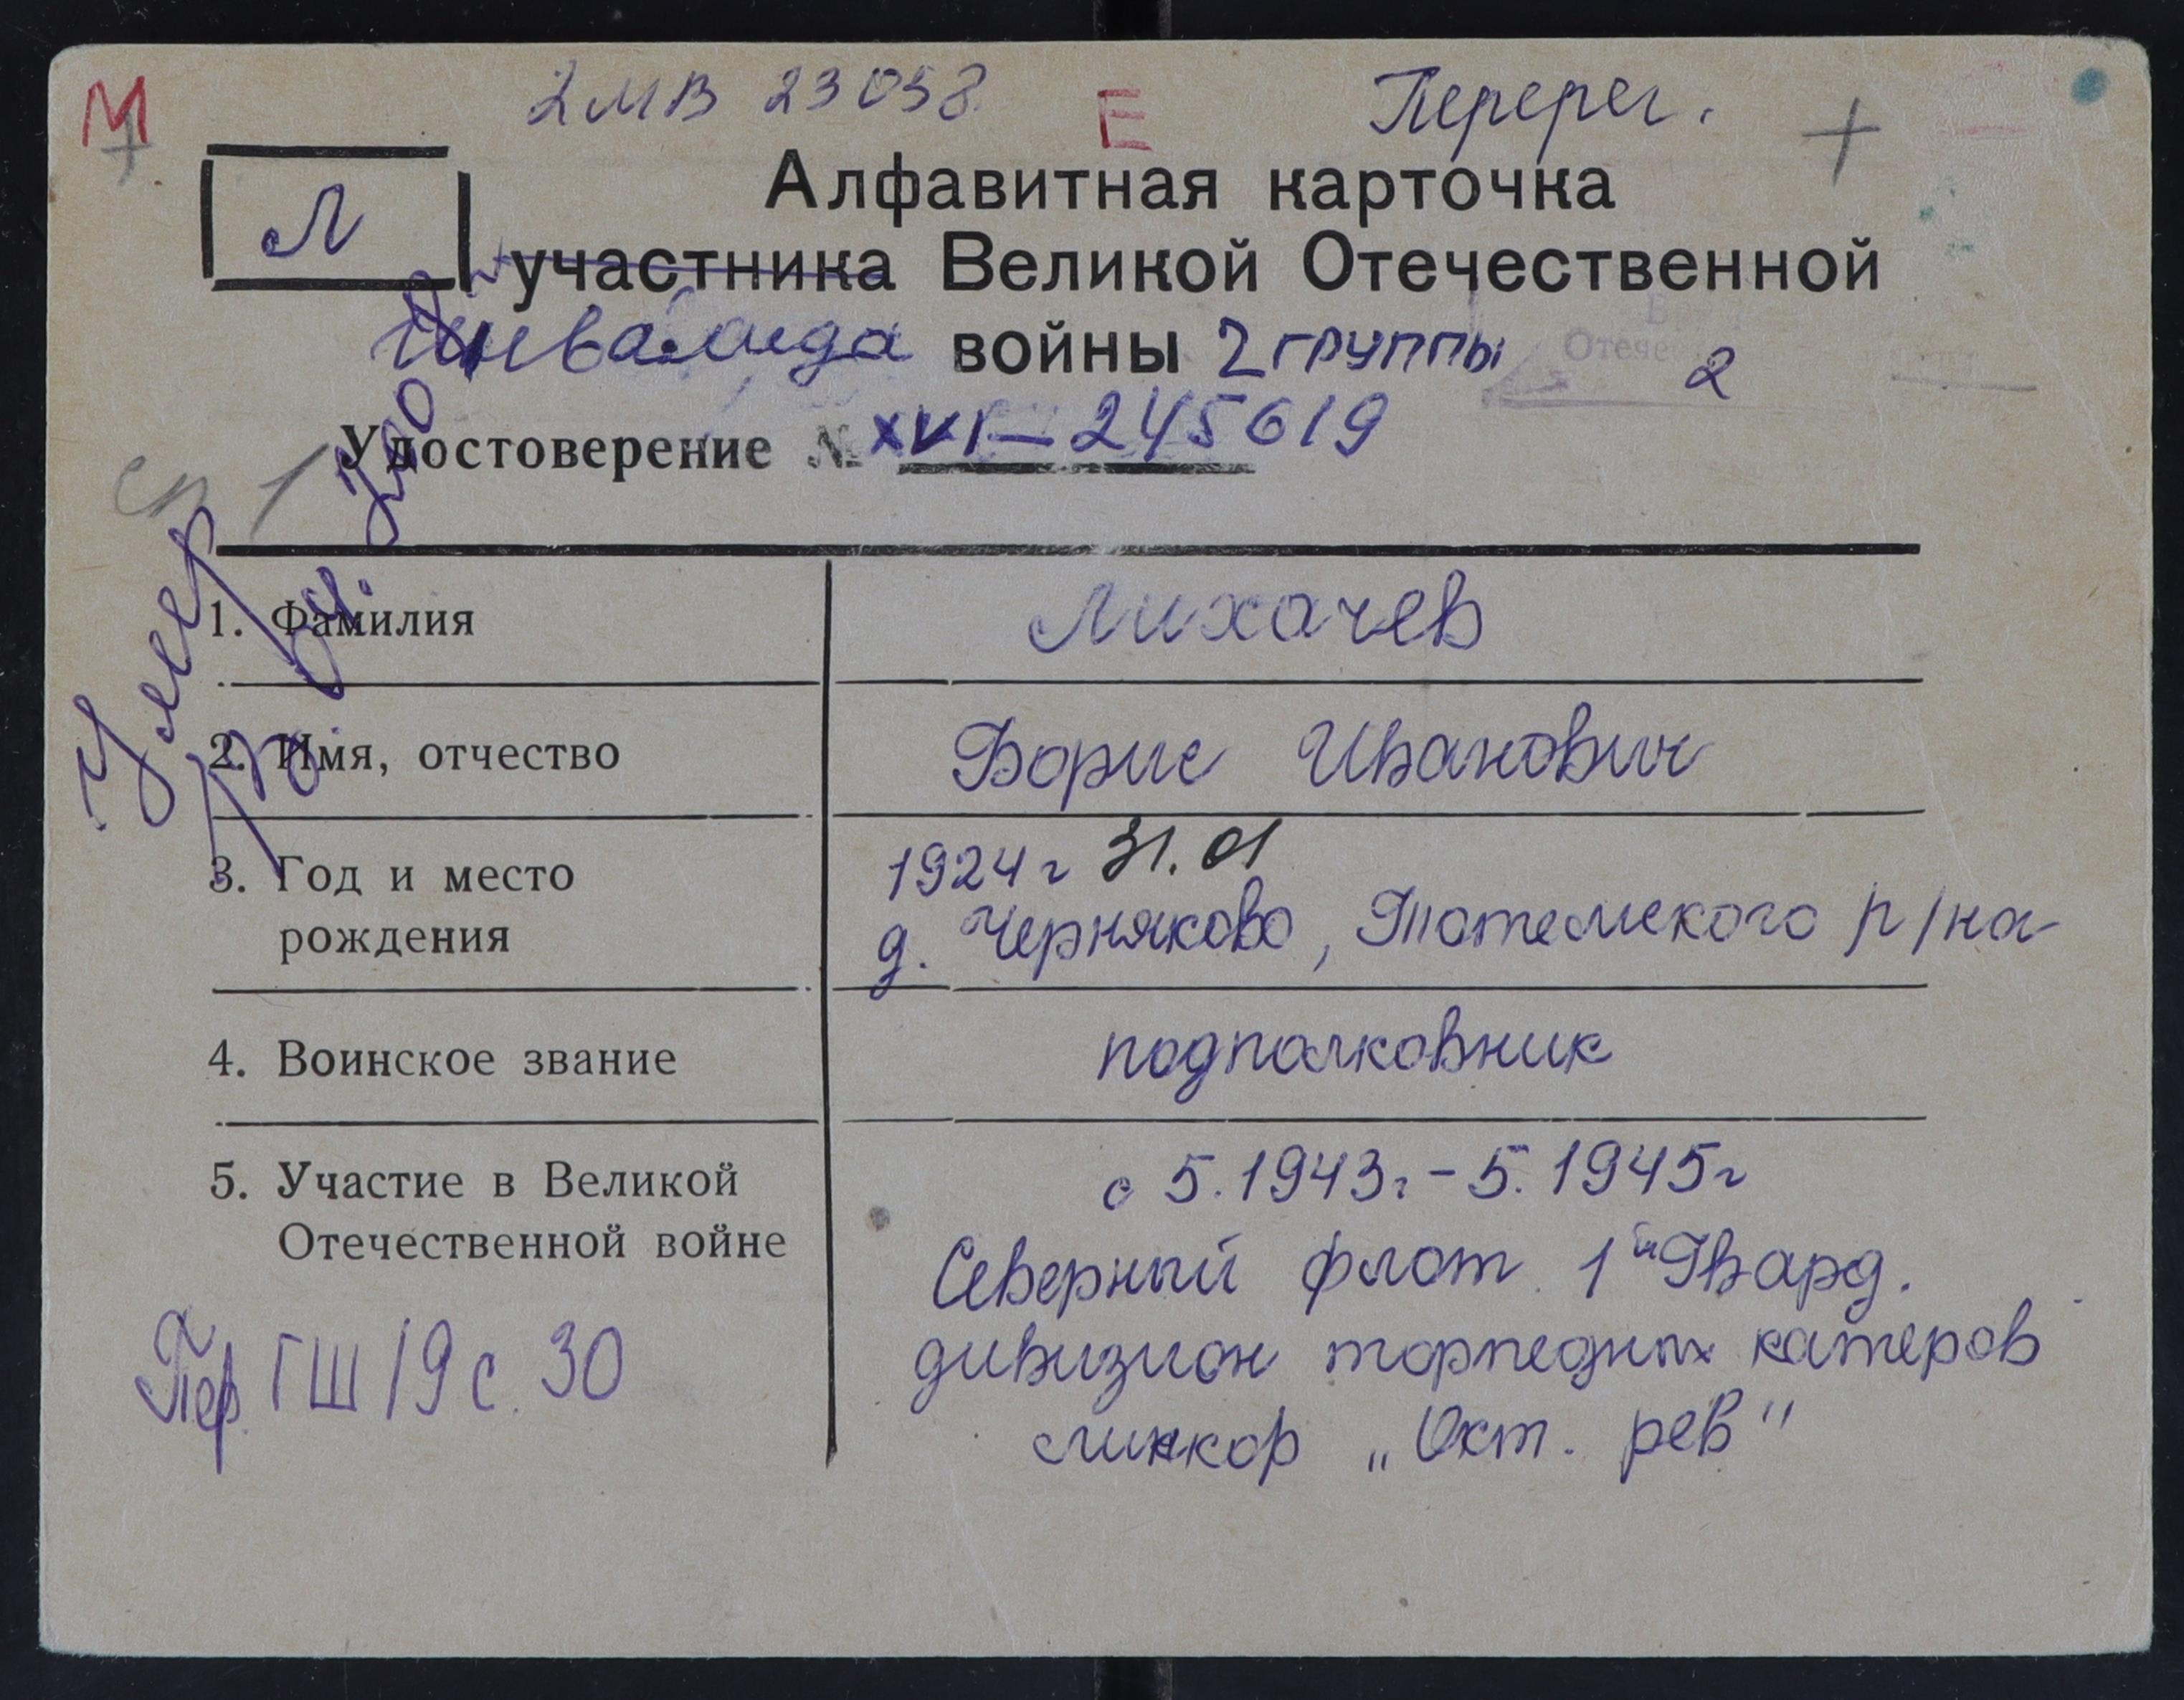 М 2МВ 23058 Е Перерег. +
Л
Алфавитная карточка
участника Великой Отечественной
инвалида войны 2 группы 2
Удостоверение № XVI - 245619
Умер
1. Фамилия Лихачев
2. Имя, отчество Борис Иванович
3. Год и место 1924 г 31.01
рождения д. Черняково, Тотемского р/на
4. Воинское звание подполковник
5. Участие в Великой с 5.1943г. - 5.1945г
Отечественной войне Северный флот 1й Гвард.
Пер. ГШ 19 с. 30 дивизион торпедных катеров
линкор „Окт. рев"